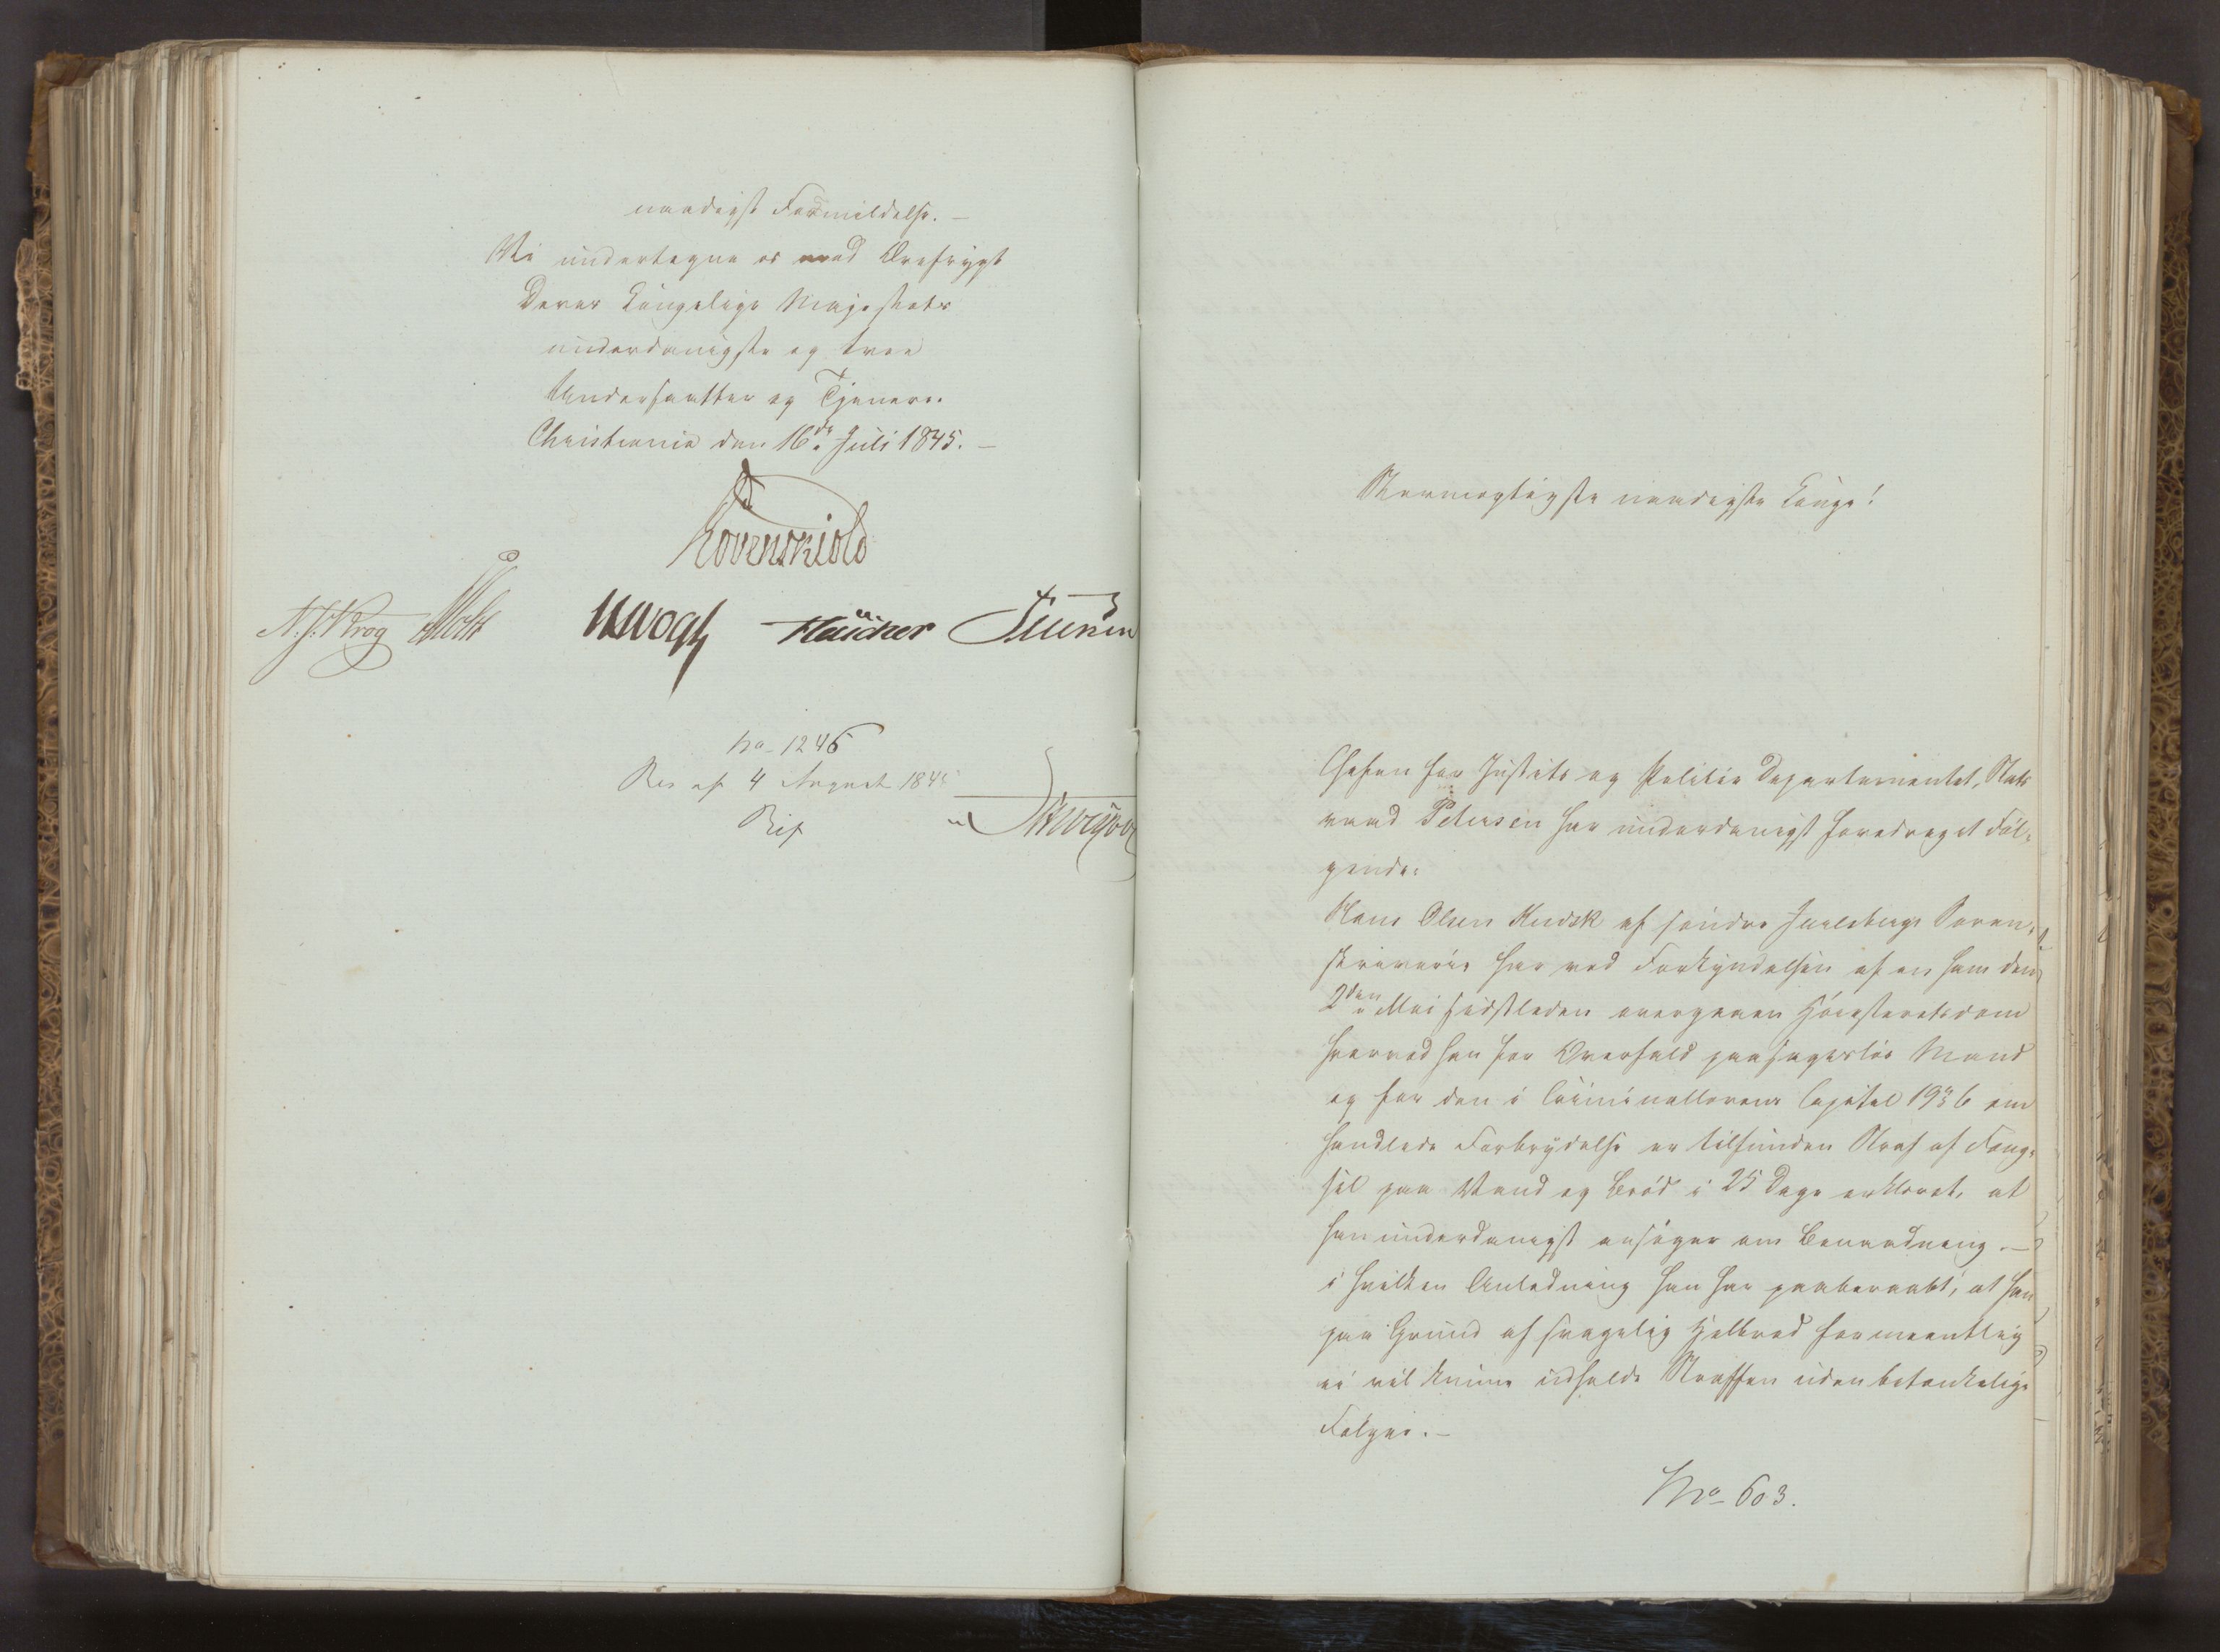 naadigst Formildelse. –
Vi undertegne os med Ærefrygt
Deres Kongelige Majestæts
underdanigste og troe
Undersaatter og Tjenere.
Christiania den 16de Juli 1845. –
Løvenskiold
N. J. Krog Motz Vogt
No 1246
Res af 4 August 1845
Stormægtigste naadigste Konge!
Chefen for Justits og Politie Departementet, Stats
raad Petersen har underdanigst foredraget Føl-
gende:
Hans Olsen Kudsk af søndre Jarlsbergs Soren-
skriverie har ved Forkyndelsen af en ham den
2den Mai sidstleden overgaaen Høiesteretsdom
hvorved han for Overfald paa sagesløs Mand
og for den i Criminallovens Capitel 19 § 6 om
handlede Forbrydelse er tilfunden Straf af Fæng-
sel paa Vand og Brød i 25 Dage erklæret, at
han underdanigst ansøger om Benaadning. –
i hvilken Anledning han har paaberaabt, at han
paa Grund af svagelig Helbred formeentlig
ei vil kunne udholde Straffen uden betænkelige
Følger. –
No 603.